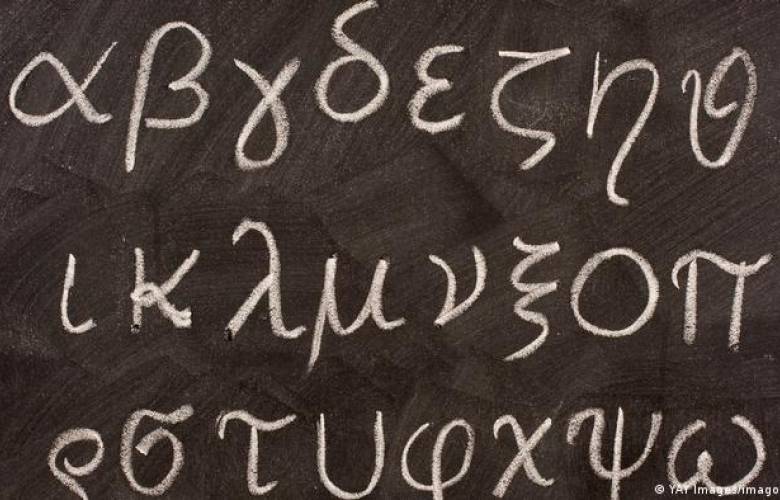 α β γ δ ε ζ η θ
ι κ λ μ ν ξ ο π
ρ σ τ υ φ χ ψ ω
© YAY Images/imago